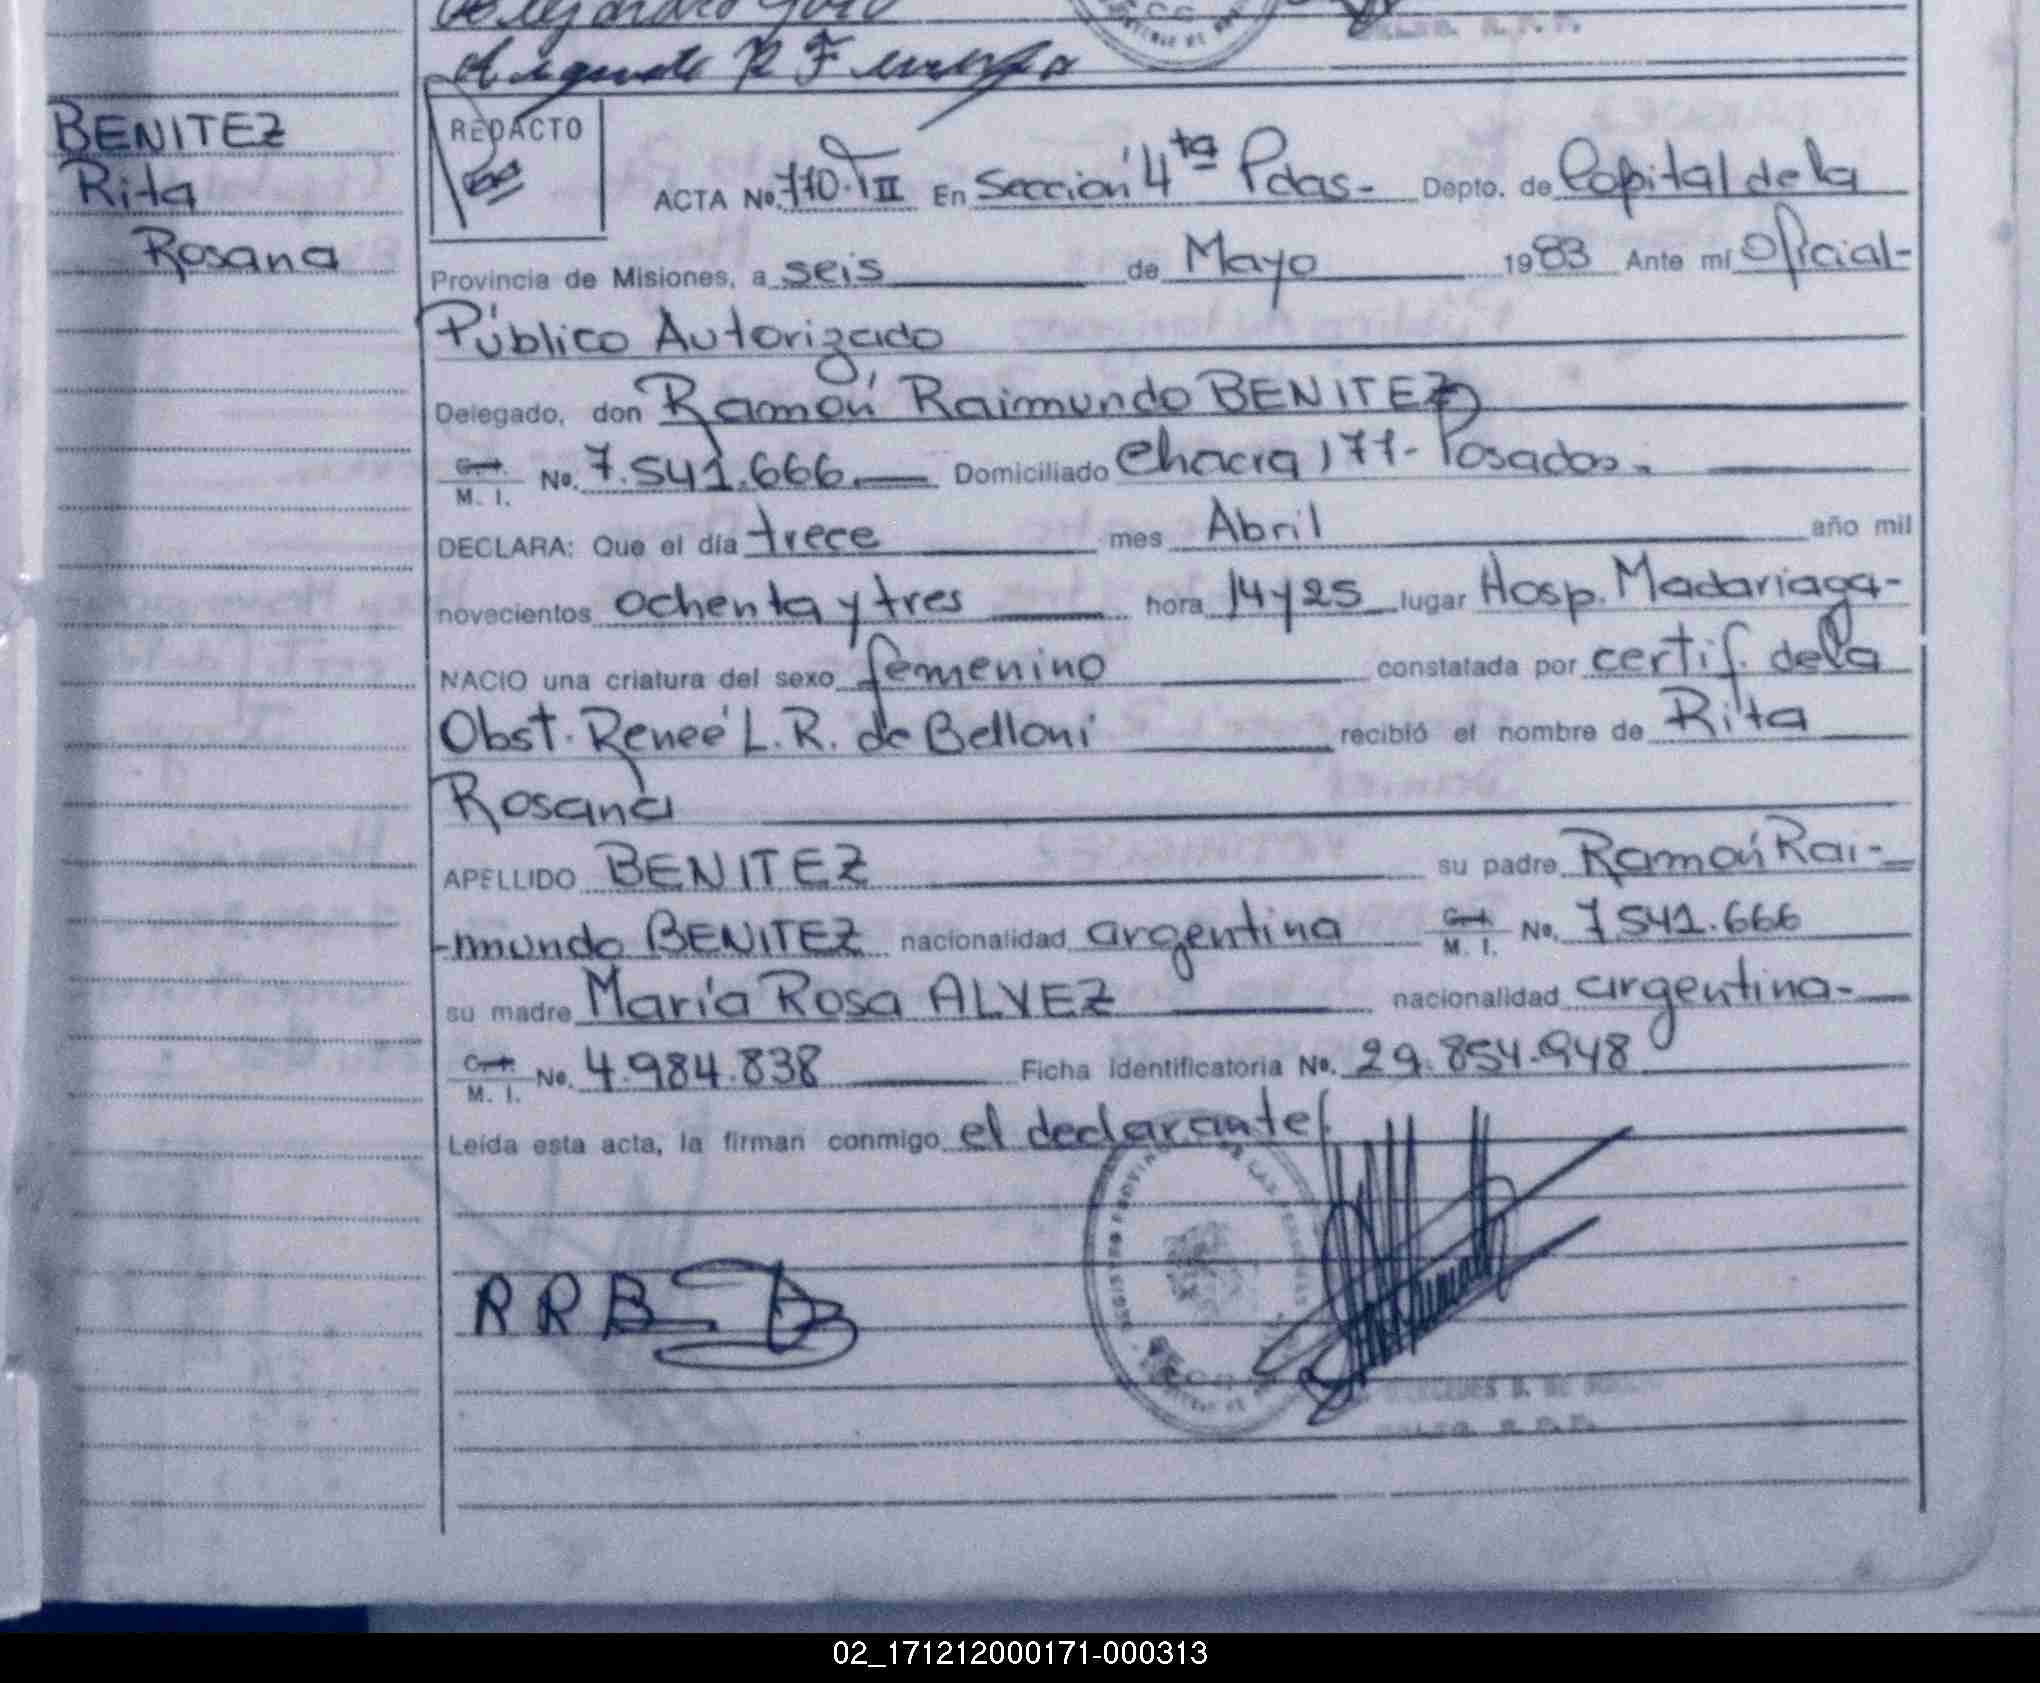 BENITEZ
Rita
Rosana
REDACTO
ACTA No. 710.TII En Sección 4ta Pdas- Depto. de Capital de la
Provincia de Misiones, a seis de Mayo 1983 Ante mí Oficial-
Público Autorizado
Delegado, don Ramón Raimundo BENITEZ
M. I. No. 7.541.666. Domiciliado Chacra 177- Posadas.
DECLARA: Que el día trece mes Abril año mil
novecientos ochenta y tres hora 14 y 25 lugar Hosp. Madariaga-
NACIO una criatura del sexo femenino constatada por certif. de la
Obst. Reneé L.R. de Belloni recibió el nombre de Rita
Rosana
APELLIDO BENITEZ su padre Ramón Rai-
-mundo BENITEZ nacionalidad argentina M. I. No. 7.541.666
su madre María Rosa ALVEZ nacionalidad argentina-
M. I. No. 4.984.838 Ficha Identificatoria No. 29.854.948
Leída esta acta, la firman conmigo el declarante
RRB
02_171212000171-000313